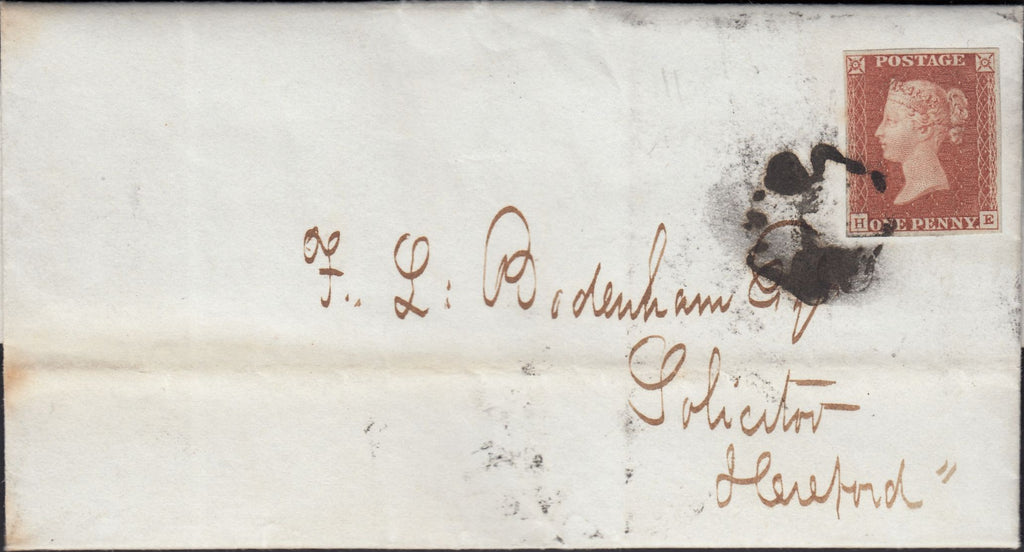 POSTAGE
H ONE PENNY E
F. L: Bodenham Esq
Solicitor
Hereford "